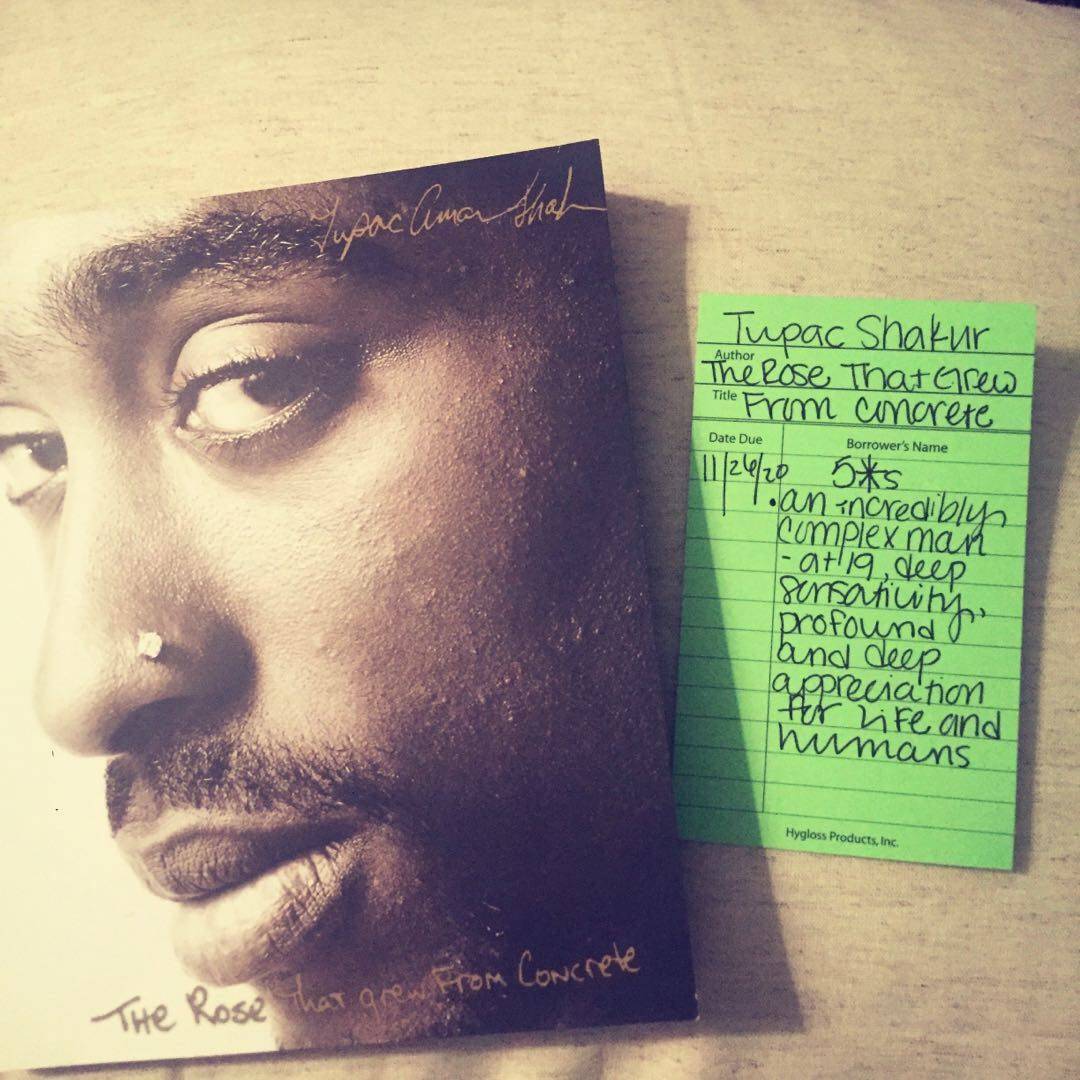 Tupac Amar Shak
The Rose that grew From Concrete
Tupac Shakur
Author
The Rose That Grew
Title From Concrete
Date Due Borrower's Name
11/24/20 5*s
• an incredibly
complex man
- at 19, deep
sensativity,
profound
and deep
appreciation
for life and
humans
Hygloss Products, Inc.